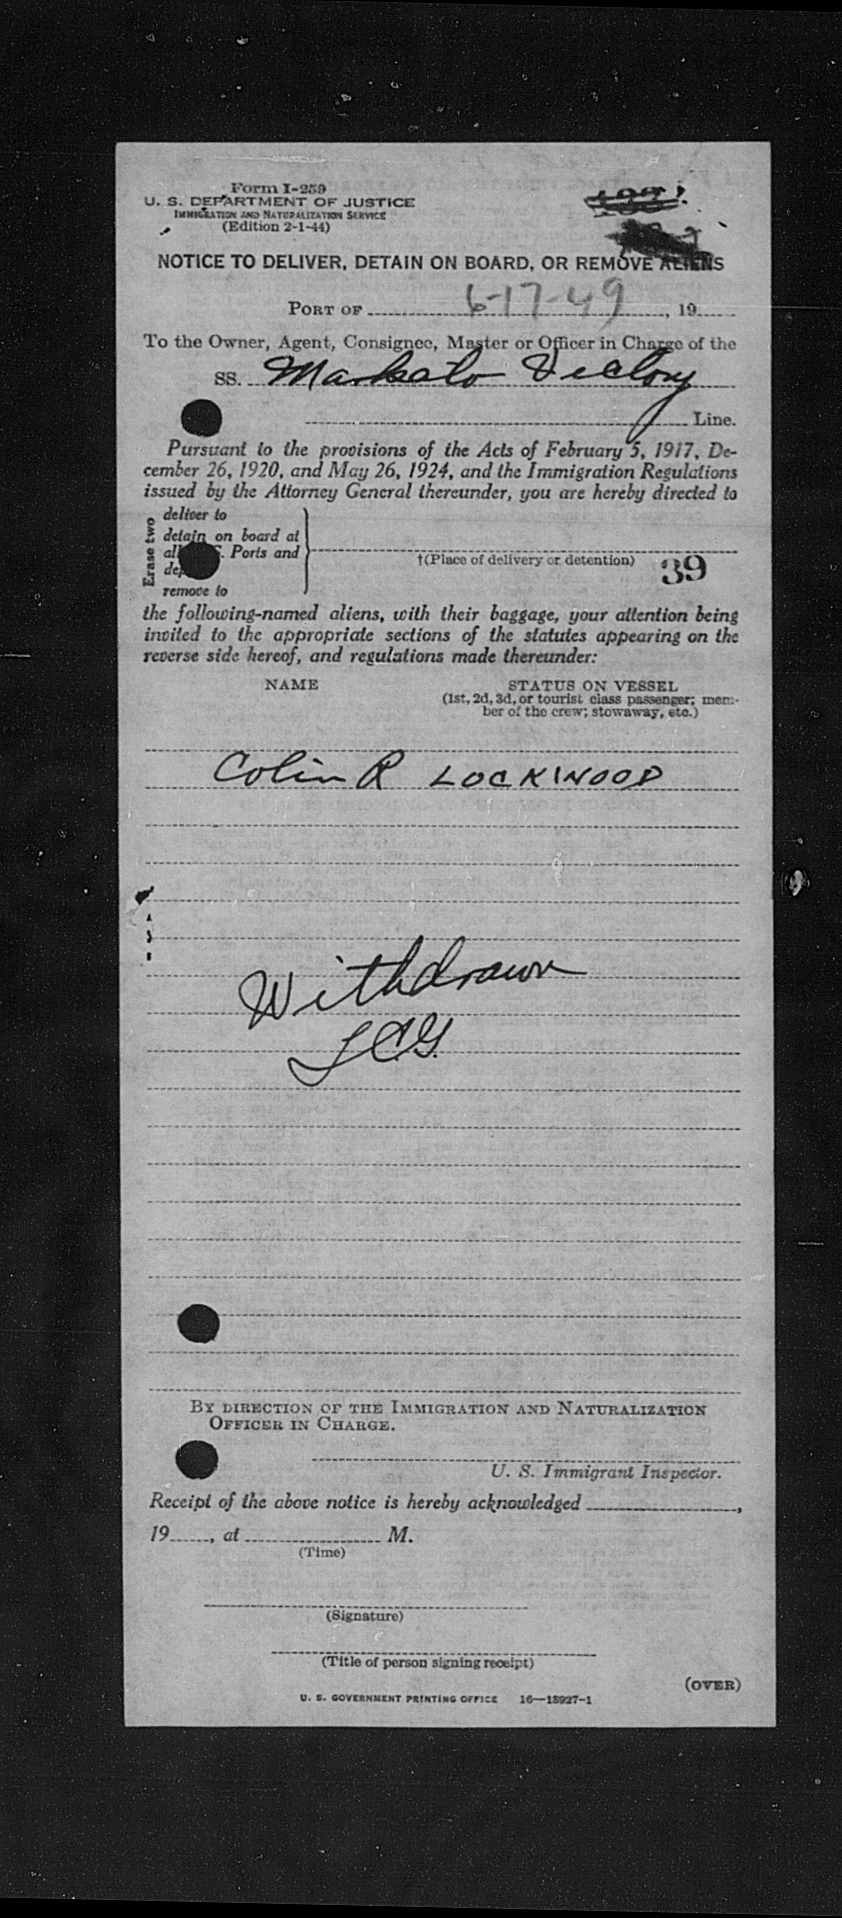 Form I-259
U. S. DEPARTMENT OF JUSTICE
IMMIGRATION AND NATURALIZATION SERVICE
(Edition 2-1-44)
NOTICE TO DELIVER, DETAIN ON BOARD, OR REMOVE ALIENS
PORT OF 6-17-49, 19
To the Owner, Agent, Consignee, Master or Officer in Charge of the
SS. Mankato Victory
Line.
Pursuant to the provisions of the Acts of February 5, 1917, De-
cember 26, 1920, and May 26, 1924, and the Immigration Regulations
issued by the Attorney General thereunder, you are hereby directed to
Erase two
deliver to
detain on board at
Ports and
remove to
†(Place of delivery or detention)
39
the following-named aliens, with their baggage, your attention being
invited to the appropriate sections of the statutes appearing on the
reverse side hereof, and regulations made thereunder:
NAME STATUS ON VESSEL
(1st, 2d, 3d, or tourist class passenger; mem-
ber of the crew; stowaway, etc.)
Colin R LOCKWOOD
Withdrawn
BY DIRECTION OF THE IMMIGRATION AND NATURALIZATION
OFFICER IN CHARGE.
U. S. Immigrant Inspector.
Receipt of the above notice is hereby acknowledged ,
19 , at M.
(Time)
(Signature)
(Title of person signing receipt)
(OVER)
U. S. GOVERNMENT PRINTING OFFICE 16—18927-1